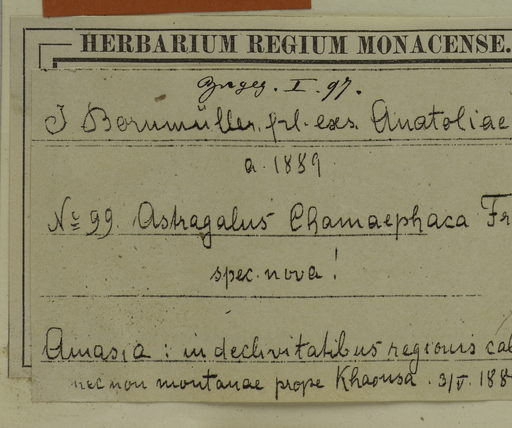 HERBARIUM REGIUM MONACENSE.
Zugeg. I. 97.
J Bornmüller. pl. exs. Anatoliae
a. 1889
No 99. Astragalus Chamaephaca Fr
spec. nova!
Amasia: in declivitatibus regionis cal
nec non montanae prope Khaousa. 3/V. 188